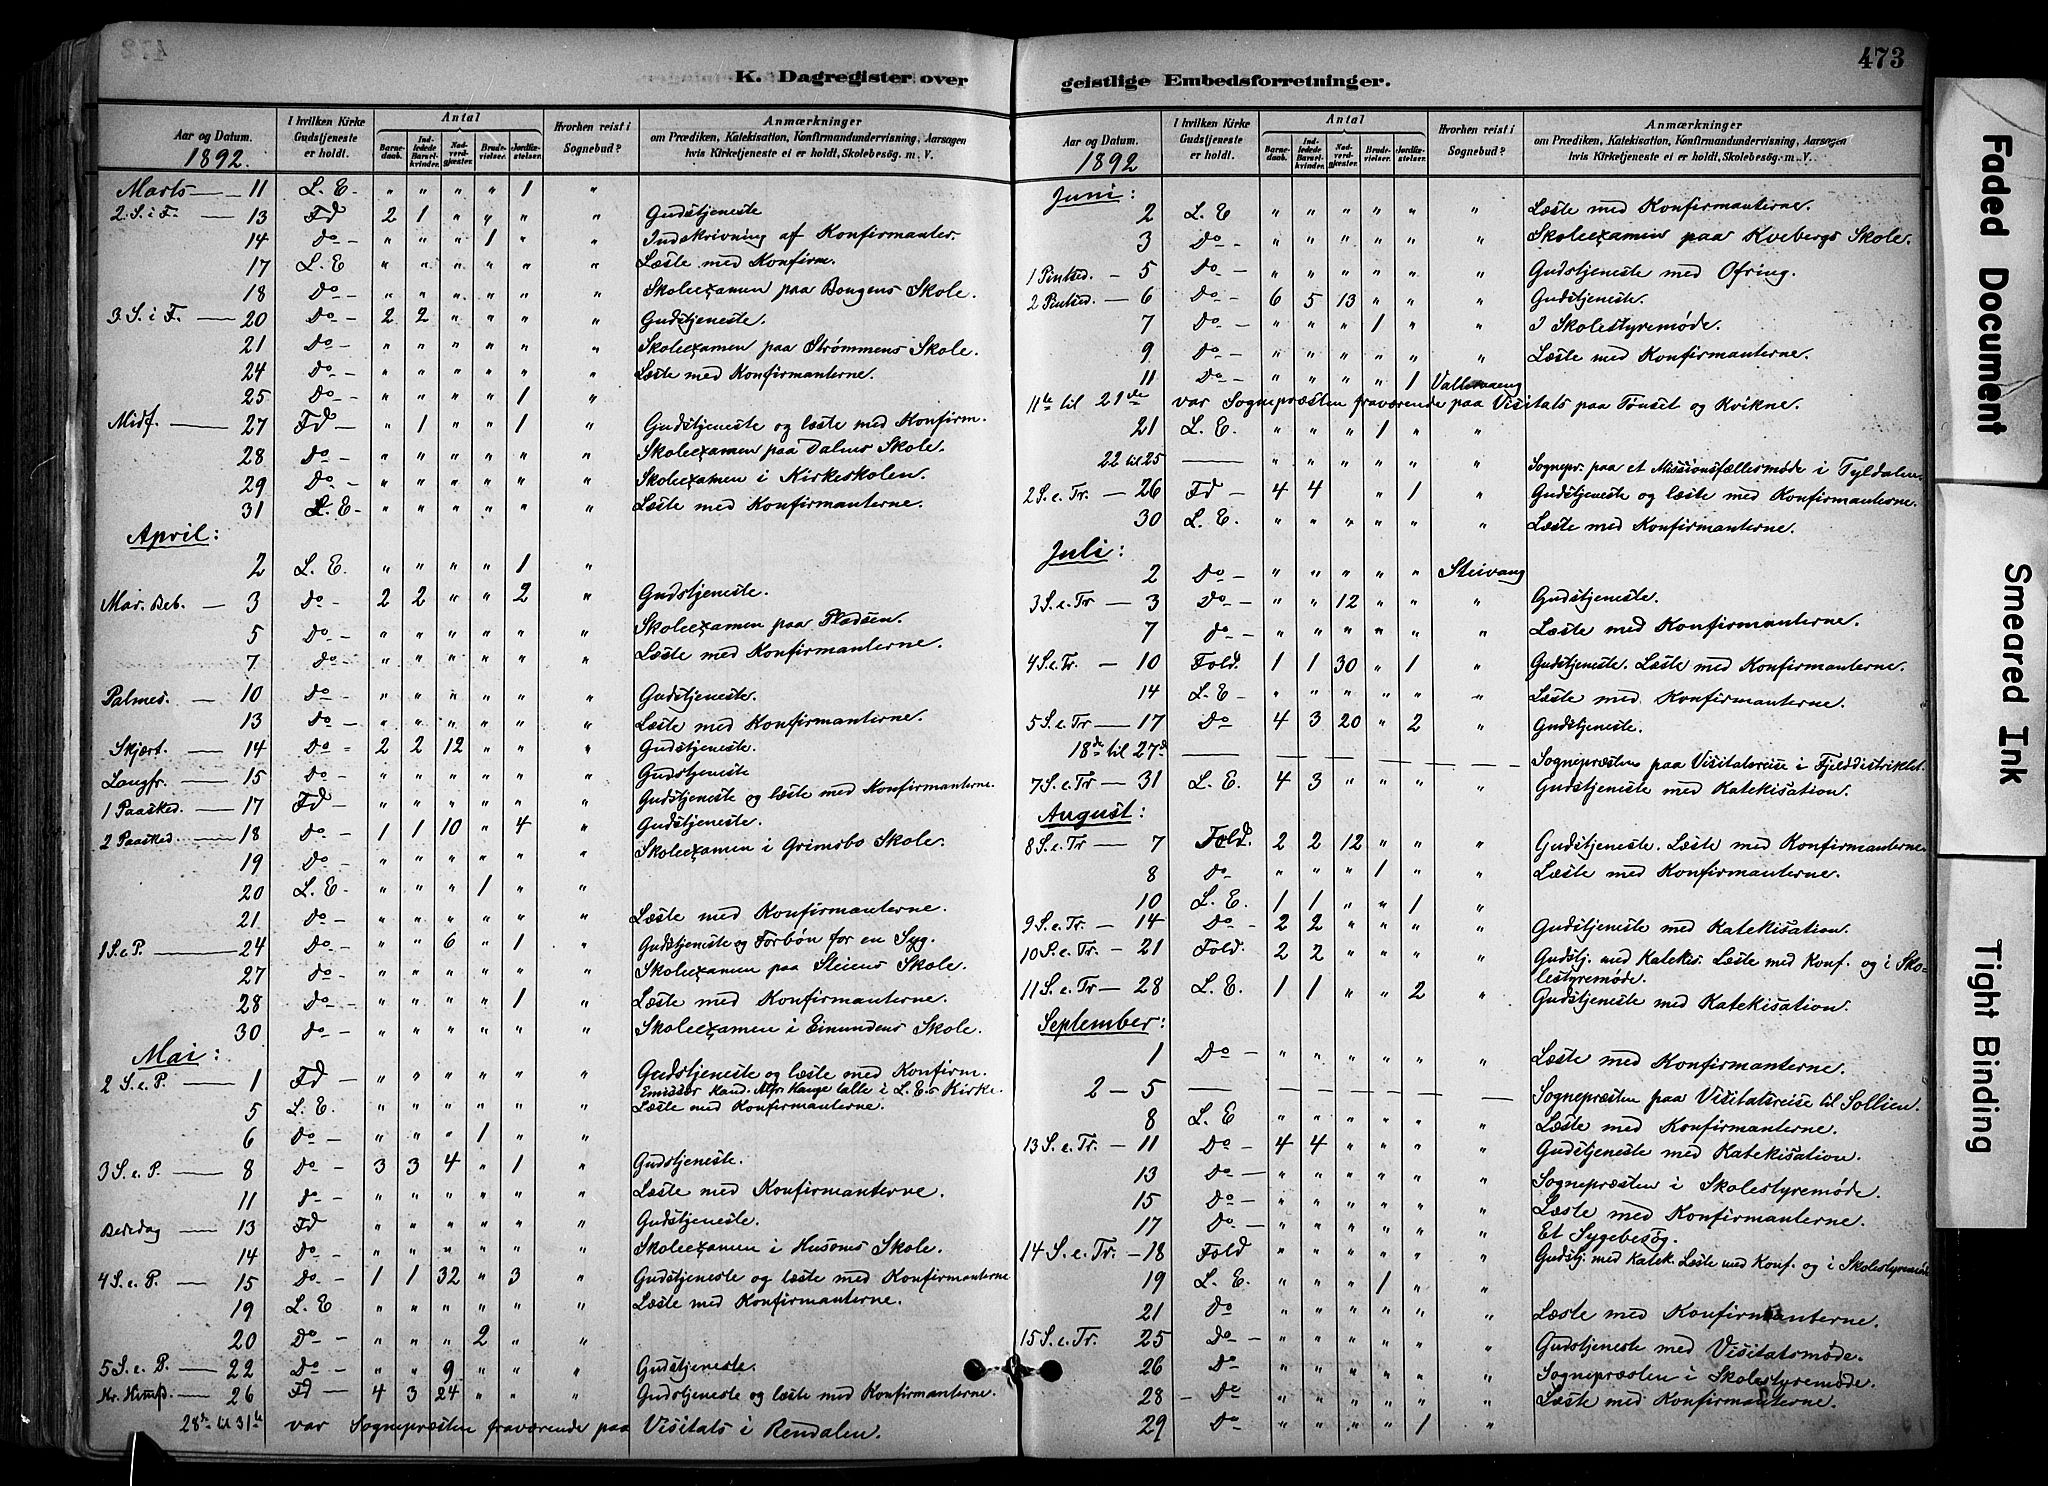 473
K. Dagregister over geistlige Embedsforretninger.
Aar og Datum. 1892. | I hvilken Kirke Gudstjeneste er holdt. | Antal | Barnedaab. | Indledede Barselkvinder. | Nadverdgjæster. | Brudevielser. | Jordfæstelser. | Hvorhen reist i Sognebud? | Anmærkninger om Prædiken, Katekisation, Konfirmandundervisning, Aarsagen hvis Kirketjeneste ei er holdt, Skolebesøg. m. V.
Marts — 11 L. E. " " " " 1 "
2. S. i F. — 13 Fd 2 1 " " " " Gudstjeneste
14 Do — " " " 1 " " Indskrivning af Konfirmanter.
17 L. E " " " " " " Læste med Konfirm.
18 Do — " " " " " " Skoleexamen paa Bougens Skole.
3. S. i F. — 20 Do — 2 2 " " " " Gudstjeneste.
21 Do — " " " " " " Skoleexamen paa Strømmens Skole.
24 Do — " " " " " " Læste med Konfirmanterne.
25 Do — " " " " 1 "
Midf. — 27 Fd — " 1 " " 1 " Gudstjeneste og læste med Konfirm.
28 Do — " " " " " " Skoleexamen paa Dalens Skole.
29 Do — " " " " " " Skoleexamen i Kirkeskolen.
31 L. E — " " " " " " Læste med Konfirmanterne.
April:
2 L. E. " " " " 1 "
Mar. Beb. — 3 Do — 2 2 " " 2 " Gudstjeneste.
5 Do — " " " " " " Skoleexamen paa Pladsen.
7 Do — " " " " " " Læste med Konfirmanterne.
Palmes. — 10 Do — " " " " " " Gudstjeneste.
13 Do — " " " " " " Læste med Konfirmanterne.
Skjært. — 14 Do — 2 2 12 " " " Gudstjeneste.
Langfr. — 15 Do — " " " " " " Gudstjeneste
1 Paasked. — 17 Fd — " " " " " " Gudstjeneste og læste med Konfirmanterne.
2 Paasked. — 18 Do — 1 1 10 " 4 " Gudstjeneste.
19 Do — " " " " " " Skoleexamen i Grimsbo Skole.
20 L. E. " " " 1 " "
21 Do — " " " " " " Læste med Konfirmanterne.
1 S. e P. — 24 Do — " " 6 " 1 " Gudstjeneste og Forbøn for en Syg.
27 Do — " " " " " " Skoleexamen paa Steiens Skole.
28 Do — " " " " 1 " Læste med Konfirmanterne.
30 Do — " " " " " " Skoleexamen i Einundens Skole.
Mai:
2 S. e P. — 1 Fd — " " " " " " Gudstjeneste og læste med Konfirm.
Emissær Kand. Alfr Hauge talte i L. E.s Kirke.
5 L. E. " " " " " " Læste med Konfirmanterne.
6 Do — " " " 1 " "
3 S. e P. — 8 Do — 3 3 4 " 1 " Gudstjeneste.
11 Do — " " " " " " Læste med Konfirmanterne.
Bededag — 13 Fd " " " " " " Gudstjeneste.
14 Do — " " " " " " Skoleexamen i Husoms Skole.
4 S. e P. — 15 Do — 1 1 32 " 3 " Gudstjeneste og læste med Konfirmanterne
19 L. E " " " " " " Læste med Konfirmanterne.
20 Do — " " " 2 " "
5 S. e P. — 22 Do — " " 9 " " " Gudstjeneste.
Kr. Himfd. — 26 Fd — 4 3 24 " " " Gudstjeneste og læste med Konfirmanterne.
28de til 31te var Sognepræsten fraværende paa Visitats i Rendalen.
Aar og Datum. 1892 | I hvilken Kirke Gudstjeneste er holdt. | Antal | Barnedaab. | Indledede Barselkvinder. | Nadverdgjæster. | Brudevielser. | Jordfæstelser. | Hvorhen reist i Sognebud? | Anmærkninger om Prædiken, Katekisation, Konfirmandundervisning, Aarsagen hvis Kirketjeneste ei er holdt, Skolebesøg. m. V.
Juni:
2 L. E " " " " " " Læste med Konfirmanterne.
3 Do — " " " " " " Skoleexamen paa Kvebergs Skole.
1 Pintsed. — 5 Do — " " " " " " Gudstjeneste med Ofring.
2 Pintsed. — 6 Do — 6 5 13 " " " Gudstjeneste.
7 Do — " " " 1 " " I Skolestyremøde.
9 Do — " " " " " " Læste med Konfirmanterne.
11 Do — " " " " 1
11te til 21de var Sognepræsten fraværende paa Visitats paa Tønset og Kvikne.
21 L. E. " " " 1 " "
22 til 25 — Sognepr. paa et Missionsfællesmøde i Tyldalen.
2 S. e. Tr. — 26 Fd — 4 4 " 1 " Gudstjeneste og læste med Konfirmanterne.
30 L. E. " " " " " " Læste med Konfirmanterne.
Juli:
2 Do — " " " " " Steivang
3 S. e. Tr — 3 Do — " " 12 " " " Gudstjeneste.
7 Do — " " " " " " Læste med Konfirmanterne.
4 S. e. Tr. — 10 Fold. 1 1 30 " 1 " Gudstjeneste. Læste med Konfirmanterne.
14 L. E — " " " " " " Læste med Konfirmanterne.
5 S. e. Tr — 17 Do 4 3 20 " 2 " Gudstjeneste.
18de til 27de — Sognepræsten paa Visitatsreise i Fjelddistriktet.
7 S. e. Tr — 31 L. E. 4 3 " " " " Gudstjeneste med Katekisation.
August:
8 S. e. Tr — 7 Fold. 2 2 12 " " " Gudstjeneste. Læste med Konfirmanterne.
8 Do — " " " 1 " " Læste med Konfirmanterne.
10 L. E. 1 1 " " 1 "
9 S. e. Tr. — 14 Do — 2 2 " " " " Gudstjeneste med Katekisation.
10 S. e. Tr. — 21 Fold. 2 2 " " " " Gudstj. med Katekis. Læste med Konf. og i Sko-
lestyremøde.
11 S. e. Tr — 28 L. E. 1 1 " " 2 " Gudstjeneste med Katekisation.
September:
1 Do — " " " " " " Læste med Konfirmanterne.
2 — 5 — Sognepræsten paa Visitatsreise til Sollien.
8 L. E " " " " " " Læste med Konfirmanterne.
13 S. e. Tr. — 11 Do — 4 4 " " " " Gudstjeneste med Katekisation.
13 Do — " " " " " " Sognepræsten i Skolestyremøde.
15 Do — " " " " " " Læste med Konfirmanterne.
17 Do — " " " " " " Et Sygebesøg.
14 S. e. Tr. — 18 Fold " " " " " " Gudstj. med Katek. Læste med Konf. og i Skolestyremøde
19 L. E. " " " 1 " "
21 Do " " " " " " Læste med Konfirmanterne.
15 S. e. Tr. 25 Do — " " " " " " Gudstjeneste med Visitatsmøde.
26 Do — " " " " " " Sognepræsten i Skolestyremøde.
28 — Do " " " " " " Læste med Konfirmanterne.
29 Do — " " " " 1 "
Faded Document
Smeared Ink
Tight Binding